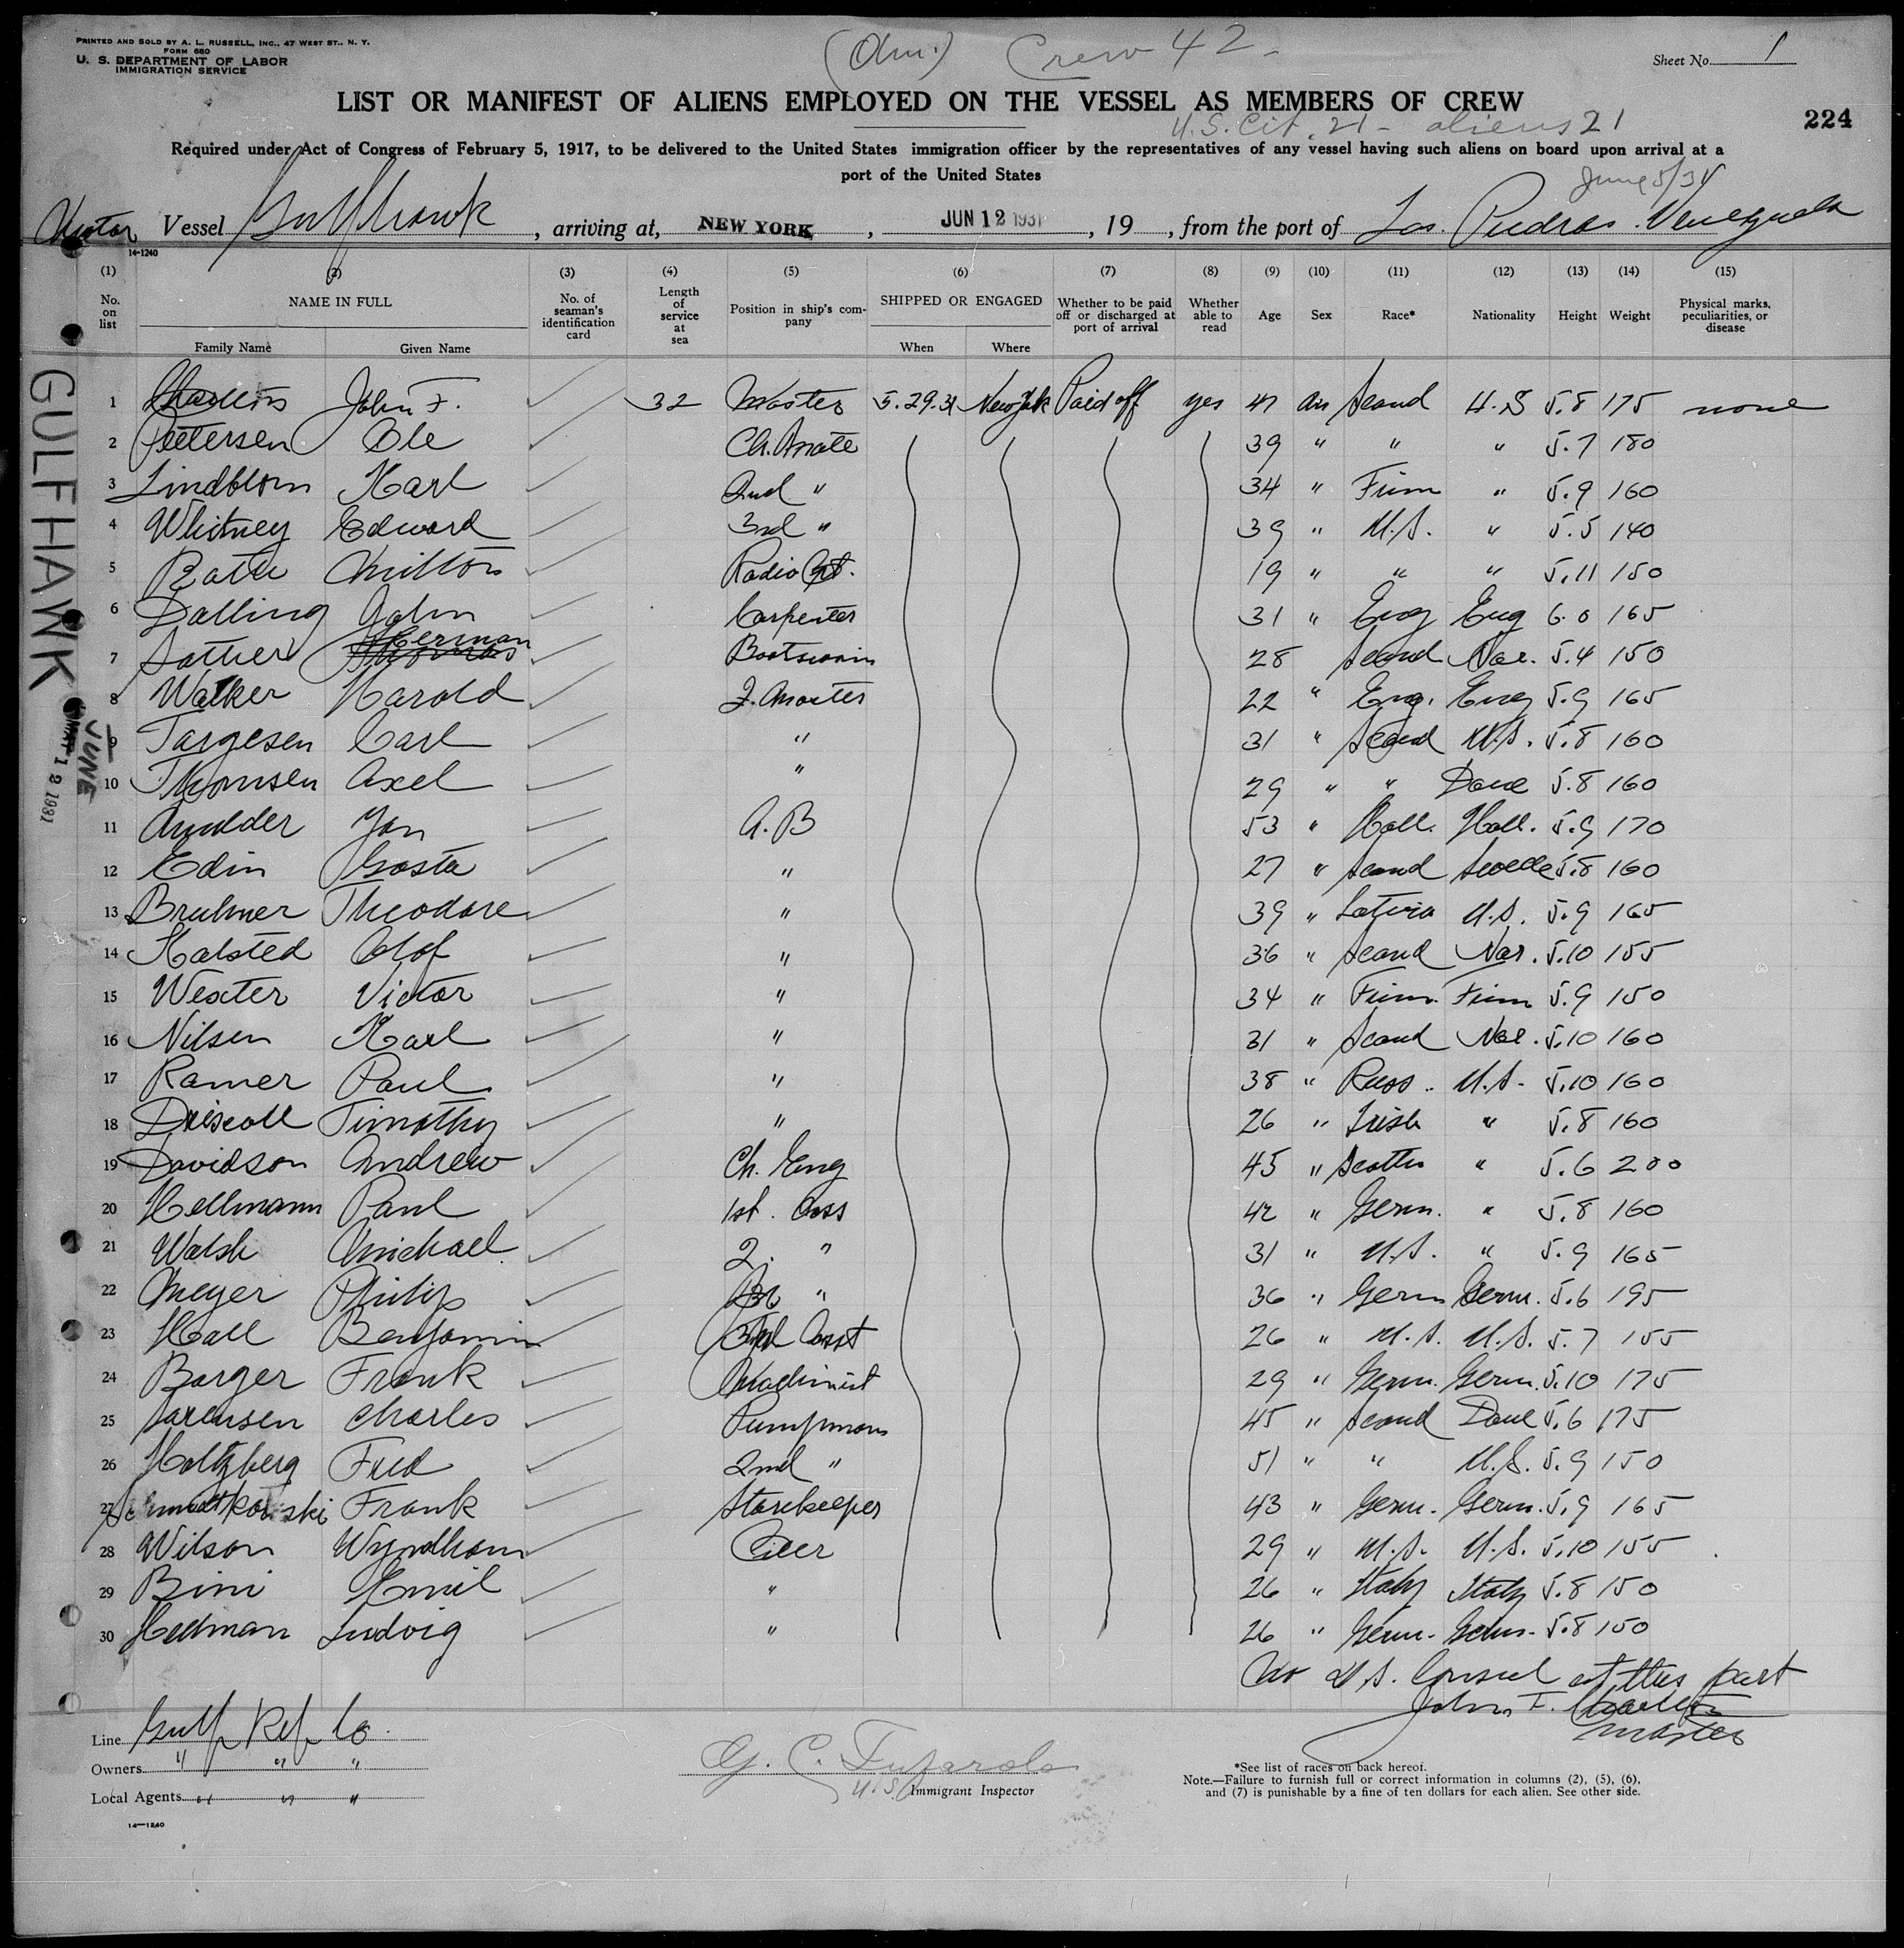 PRINTED AND SOLD BY A. L. RUSSELL, INC., 47 WEST ST., N. Y.
FORM 680
U. S. DEPARTMENT OF LABOR
IMMIGRATION SERVICE
Crew 42
Sheet No. 1
LIST OR MANIFEST OF ALIENS EMPLOYED ON THE VESSEL AS MEMBERS OF CREW
U.S. Cit. 21 - aliens 21
224
Required under Act of Congress of February 5, 1917, to be delivered to the United States immigration officer by the representatives of any vessel having such aliens on board upon arrival at a
port of the United States
June 5/31
Vessel Gulfhawk, arriving at, NEW YORK, JUN 12 1931, 19 , from the port of Las Piedras Venezuela
14-1240
(1) (2) (3) (4) (5) (6) (7) (8) (9) (10) (11) (12) (13) (14) (15)
No. on list NAME IN FULL No. of seaman's identification card Length of service at sea Position in ship's company SHIPPED OR ENGAGED Whether to be paid off or discharged at port of arrival Whether able to read Age Sex Race* Nationality Height Weight Physical marks, peculiarities, or disease
Family Name Given Name When Where
GULFHAWK
JUNE
12 1931
1 John F. 32 Master 5.29.31 New York Paid off yes 47 Scand U.S 5.8 175 none
2 Pettersen Ole Ch. Mate 39 " " " 5.7 180
3 Lindblom Karl 2nd " 34 " Finn " 5.9 160
4 Whitney Edward 3nd " 39 " U.S. " 5.5 140
5 Milton Radio Opt. 19 " " " 5.11 150
6 Dalling John Carpenter 31 " Eng Eng 6.0 165
7 Herman Boatswain 28 Scand Nor. 5.4 150
8 Walker Harold Q. Master 22 " Eng. Eng 5.9 165
9 Targesen Carl " 31 " Scand U.S. 5.8 160
10 Thomsen Axel " 29 " " Dane 5.8 160
11 Mulder Jan A.B 53 " Holl. Holl. 5.9 170
12 Edin Gosta " 27 " Scand Swede 5.8 160
13 Bruhner Theodore " 39 " Latvia U.S. 5.9 165
14 Halsted Olof " 36 " Scand Nor. 5.10 155
15 Wexter Victor " 34 " Finn. Finn 5.9 150
16 Nilsen Karl " 31 " Scand Nor. 5.10 160
17 Ramer Paul " 38 " Russ. U.S. 5.10 160
18 Driscoll Timothy " 26 " Irish " 5.8 160
19 Davidson Andrew Ch. Eng 45 " Scotch " 5.6 200
20 Hellmann Paul 1st. Ass 42 " Germ. " 5.8 160
21 Walsh Michael 2. " 31 " U.S. " 5.9 165
22 Meyer Philip " 36 " Germ Germ. 5.6 195
23 Hall Benjamin Asst 26 " U.S. U.S. 5.7 155
24 Barger Frank Machinist 29 " Germ. Germ. 5.10 175
25 Sorensen Charles Pumpman 45 " Scand Dane 5.6 175
26 Holtzberg Fred 2nd " 51 " " U.S. 5.9 150
27 Frank Storekeeper 43 " Germ. Germ. 5.9 165
28 Wilson Wyndham Oiler 29 " U.S. U.S. 5.10 155
29 Bini Emil " 26 " Italy Italy 5.8 150
30 Hellman Ludvig " 26 " Germ. Germ. 5.8 150
No U.S. Consul at this port
John F. Charlton
Master
Line Gulf Ref Co.
Owners " " "
Local Agents " " "
U.S. Immigrant Inspector
*See list of races on back hereof.
Note.—Failure to furnish full or correct information in columns (2), (5), (6),
and (7) is punishable by a fine of ten dollars for each alien. See other side.
14—1240